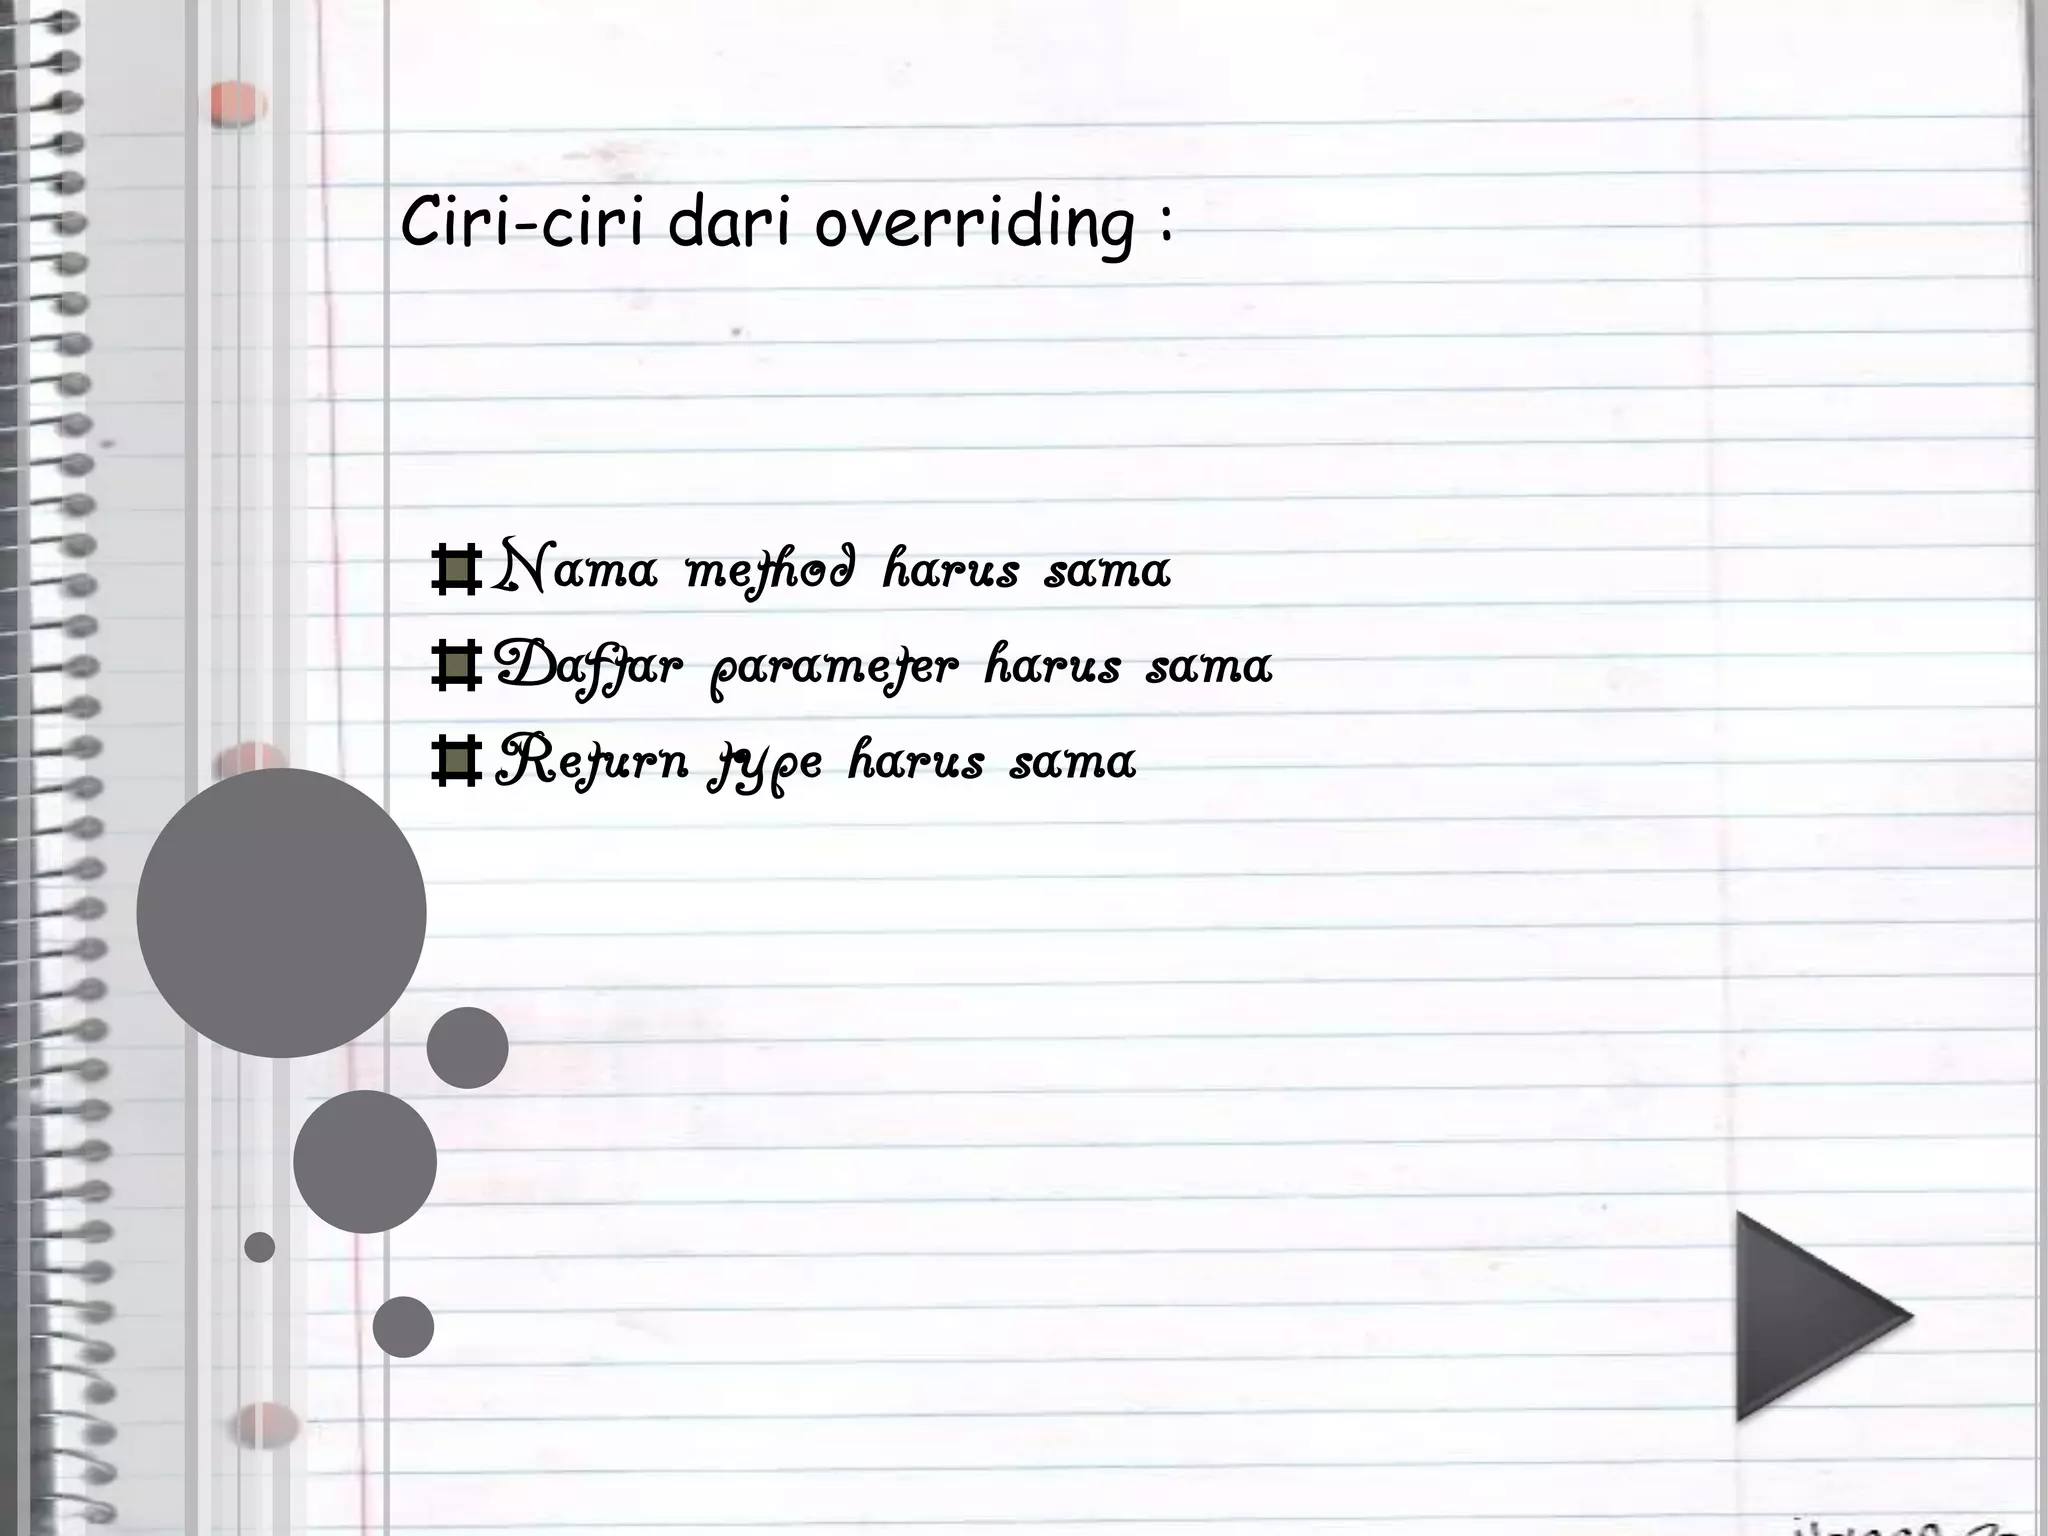 Ciri-ciri dari overriding :
Nama method harus sama
Daftar parameter harus sama
Return type harus sama